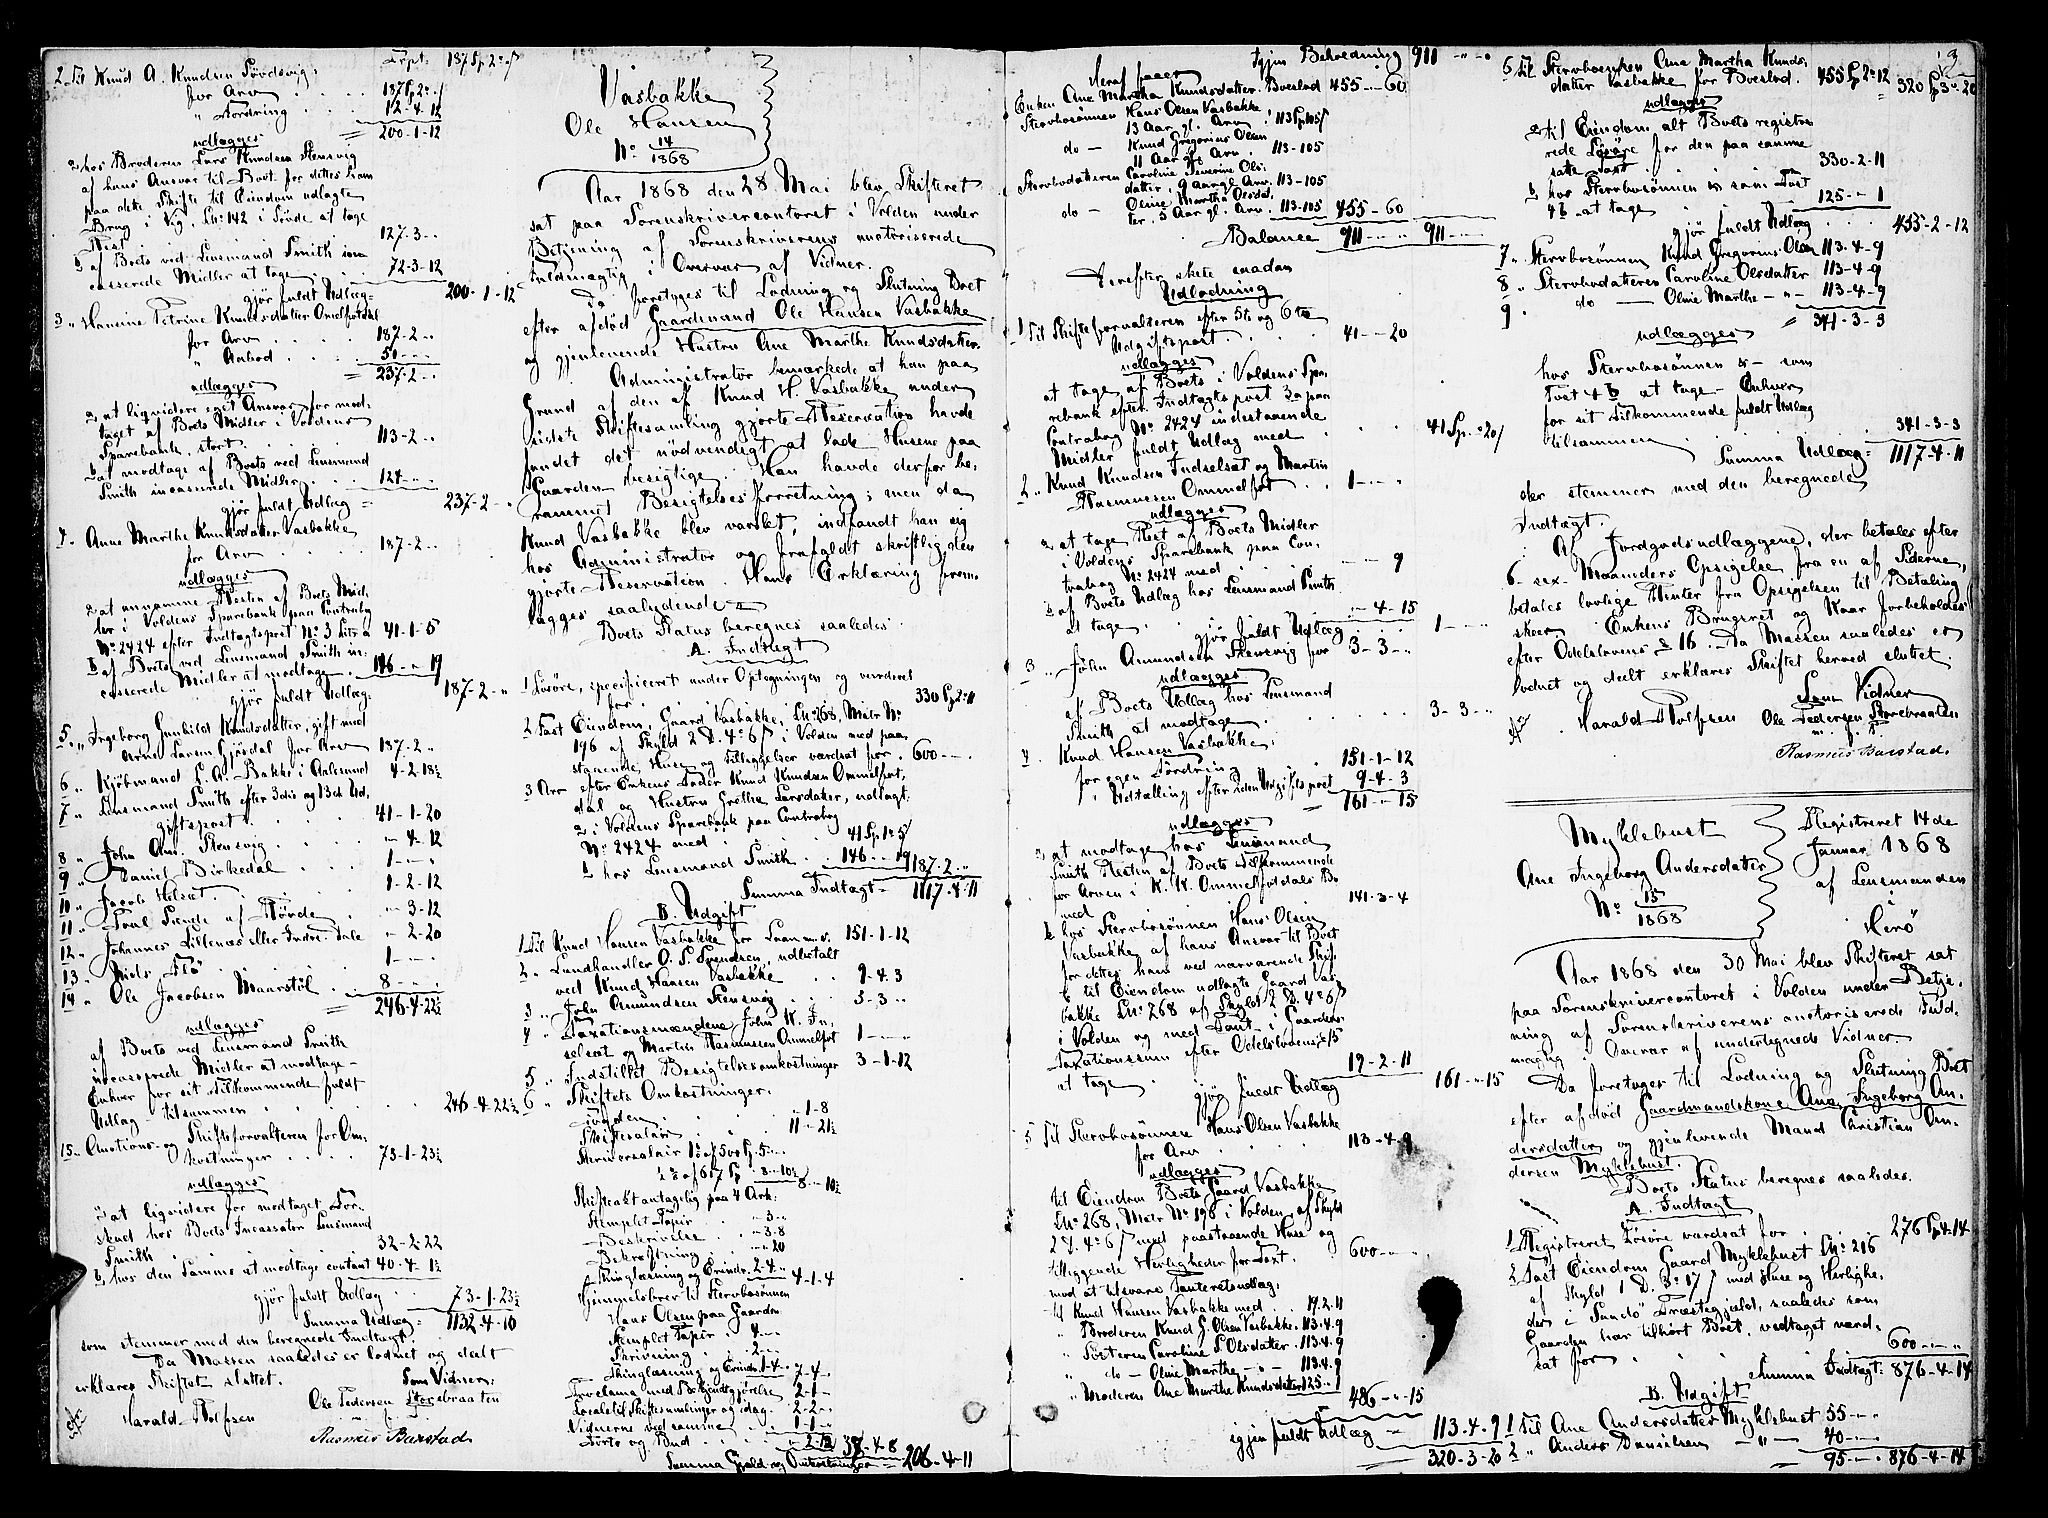 Trpt. 187 Sp 2 " "
2. Til Knud A. Knudsen Sövdsvig:
for Arv . . . . 187 Sp 2 " "
" Fordring . . . 12-4-12
= 200-1-12
udlægges
a, hos Broderen Lars Knudsen Stensvig
af hans Ansvar til Boet for dette ham
paa dette Skifte til Eiendom udlagte
Brug i Vig, LNo 142 i Sövde at tage
127-3-"
b af Boets ved Lensmand Smith ind-
casserede Midler at tage . . 72-3-12
gjør fuldt Udlæg 200-1-12
3 " Hansine Petrine Knudsdatter Ommelfotdal
for Arv . . . . 187-2-"
" Anbod . . . . 50-"-"
= 237-2-"
udlægges
a, at liqvidere eget Ansvar for mod-
taget af Boets Midler i Voldens
Sparebank, stort . . . 113-2-"
b at modtage af Boets ved Lensmand
Smith incasserede Midler . . 124-"-"
gjør fuldt Udlæg = 237-2-"
4 " Anne Marthe Knudsdatter Vasbakke
for Arv . . . . 187-2-"
udlægges
a at annamme Resten af Boets Mid-
ler i Voldens Sparebank paa Contrabog
No 2424 efter Indtægtspost No 3 Litr a 41-1-5
b af Boets ved Lensmand Smith in-
casserede Midler at modtage . 146-"-19
gjør fuldt Udlæg. 187-2-"
5 " Ingeborg Gunhild Knudsdatter, gift med
Arne Larsen Gjøsdal for Arv 187-2-"
6 " Kjöbmand L. A. Bakke i Aalesund 4-2-18½
7 " Lensmand Smith efter 3die og 13de Ud-
giftspost . . . . 41-1-20
8 " John Am. Stensvig . . . "-4-12
9 " Daniel Birkedal . . . 1-"-"
10 " Jacob Helset . . . 1-2-12
11 " Poul Sunde af Rövde . "-3-12
12 " Johannes Lillenæs eller Indre-Dale "-2-20
13 " Niels Flö . . . 1-"-"
14 " Ole Jacobsen Maarstöl . . 8-"-"
= 246-4-22½
udlægges
af Boets ved Lensmand Smith
incasserede Midler at modtage -
Enhver for sit Tilkommende fuldt
Udlæg - tilsammen . . . 246-4-22½
15 " Auctions- og Skifteforvalteren for Om-
kostninger . . . . 73-1-23½
udlægges
a at liqvidere for modtaget For-
skud hos Boets Incassator Lensmand
Smith . . . . 32-2-22
b, hos den Samme at modtage contant 40-4-1½
gjør fuldt Udlæg . . 73-1-23½
Summa Udlæg = 1132-4-10
som stemmer med den beregnede Indtægt.
Da Massen saaledes er lodnet og deelt
erklæres Skiftet sluttet.
Som Vidner:
Harald Rolfsen Ole Pedersen Storebraaten
Rasmus Barstad
Vasbakke
Ole Hansen
No 14/1868
Aar 1868 den 28 Mai blev Skifteret
sat paa Sorenskrivercontoret i Volden under
Betjening af Sorenskriverens autoriserede
Fuldmægtig i Overvær af Vidner.
Da foretoges til Lodning og Slutning Boet
efter afdöd Gaardmand Ole Hansen Vasbakke
og gjenlevende Hustru Ane Marthe Knudsdatter.
Administrator bemærkede at han paa
Grund af den af Knud H. Vasbakke under
sidste Skiftesamling gjorte Reservation havde
fundet det nödvendigt at lade Husene paa
Gaarden besigtige. Han havde derfor be-
rammet Besigtelsesforretning; men da
Knud Vasbakke blev varslet, indfandt han sig
hos Administrator og frafaldt skriftlig den
gjorte Reservation. Hans Erklæring frem-
lægges saalydende
Boets Status beregnes saaledes:
A. Indtægt
1 Lösöre, specificeret under Optegningen og vurderet
for . . . . 330 Sp 2 " 11
2 Fast Eiendom, Gaard Vasbakke, LNo 268, Matr No
196 af Skyld 2 D. 4 o 6 β i Volden med paa-
staaende Huse og Tilliggelser værdsat for . 600-"-"
3 Arv efter Enkens Fader Knud Knudsen Ommelfot-
dal og Hustru Grethe Larsdatter, udlagt:
a i Voldens Sparebank paa Contrabog
No 2424 med . . . 41 Sp 1 o 5 β
b hos Lensmand Smith . . 146-"-19 187-2-"
Summa Indtægt = 1117-4-11
B. Udgift
1 Til Knud Hansen Vasbakke for Laan m. v. 151-1-12
2 " Landhandler O. P. Svendsen, udbetalt
ved Knud Hansen Vasbakke 9-4-3
3 " John Amundsen Stensvig . . 3-3-"
4 " Taxationsmændene John K. In-
selset og Martin Rasmussen Ommelfot 1-"-"
5 " Indstillet Besigtelsesomkostninger 3-1-12
6 " Skiftets Omkostninger:
Lysden . . . "-1-8
Skiftesalair . . . 11-"-21½
Skriversalair 1% af 500 Sp. 5-"-"
½ % af 617 Sp . 3-"-10½ 8-"-10½
Skifteakt antagelig paa 4 Ark:
Stemplet Papir . . "-3-"
Beskrivelse . . "-3-8
Bekræftning . . "-"-20
Thinglæsning og Erindr. 2-4-" 4-1-4
Hjemmelsbrev til Stervbosönnen
Hans Olsen paa Gaarden
Stemplet Papir . 4-"-"
Skrivning . . 2-"-"
Thinglæsning og Erindr. 1-4-" 7-4-"
Proclama med Bekjendtgjörelse 2-1-"
Locale til Skiftesamlinger og idag 2-2-"
Vidnerne ved samme . 1-1-"
Porto og Bud . . . "-2-12 38-4-8
Summa Gjæld og Omkostninger = 206-4-11
Igjen Beholdning 911-"-"
Heraf faaer
Enken Ane Martha Knudsdatter Boeslod 455-"-60
Stervbosönnen Hans Olsen Vasbakke
13 Aar gl. Arv . 113 Sp 105 β
do - Knud Gregorius Olsen
11 Aar gl. Arv . 113-105
Stervbodatteren Caroline Severine Ols-
datter, 9 aar gl. Arv. 113-105
do - Oline Martha Olsdat-
ter. 5 Aar gl. Arv . 113-105 455-60
Balance 911-"-" 911-"-"
Derefter skete saadan
Udlodning
1 Til Skifteforvalteren efter 5te og 6te
Udgiftspost . . . 41-"-20
udlægges
at tage af Boets i Voldens Spa-
rebank efter Indtægts post 3 a paa
Contrabog No 2424 indestaaende
Midler fuldt Udlæg med . . . 41 Sp. " 20 β
2 " Knud Knudsen Indselset og Martin
Rasmussen Ommelfot . . 1-"-"
udlægges
a at tage Rest af Boets Midler
i Voldens Sparebank paa Con-
trabog No 2424 med "-"-9
b af Boets Udlæg hos Lensmand Smith
at tage . . . "-4-15
gjør fuldt Udlæg 1-"-"
3 " John Amundsen Stensvig for 3-3-"
udlægges
af Boets Udlæg hos Lensmand
Smith at modtage . . . 3-3-"
4 " Knud Hansen Vasbakke:
for egen Fordring . . 151-1-12
" Udtælling efter 2den Udgiftspost 9-4-3
= 161-"-15
udlægges
a, at modtage hos Lensmand
Smith Resten af Boets Tilkommende
for Arven i K. K. Ommelfotdals Bo
med . . . 141-3-4
b hos Stervbosönnen Hans Olsen
Vasbakke af hans Ansvar til Boet
for dette ham ved nærværende Skif-
te til Eiendom udlagte Gaard Vas-
bakke LNo 268 af Skyld 2 D. 4 o 6 β
i Volden og med Pant i Gaarden
Taxationssum efter Odelslovens § 15
at tage . . . 19-2-11
gjør fuldt Udlæg 161-"-15
5 Til Stervbosönnen Hans Olsen Vasbakke
for Arv . . . 113-4-9
udlægges
til Eiendom Boets Gaard Vasbakke
LNo 268, Matr No 196 i Volden, af Skyld
2 D. 4 o 6 β med paastaaende Huse og
tilliggende Herligheder for Taxt. 600-"-"
mod at tilsvare Panteretsudlæg:
til Knud Hansen Vasbakke med . . 19.2.11
" Broderen Knud G. Olsen Vasbakke . 113.4.9
" Sösteren Caroline S. Olsdatter . 113.4.9
" do - Oline Marthe - " - 113.4.9
" Moderen Ane Marthe Kundsdatter 125-"-1
486-"-15
igjen fuldt Udlæg = 113-4-9
320-3-20
3
6 Til Stervboenken Ane Martha Knuds-
datter Vasbakke for Boeslod. 455 Sp 2 o 12
= 320 Sp 3 o 20
udlægges
a til Eiendom alt Boets registre-
rede Lösöre for den paa samme
satte Taxt . . . 330-2-11
b hos Stervbosönnen Hans som Post
4 b at tage . . . 125-"-1
gjør fuldt Udlæg . . . 455-2-12
7 " Stervbosönnen Knud Gregorius Olsen 113-4-9
8 " Stervbodatteren Caroline Olsdatter 113-4-9
9 " do - Oline Marthe - " - 113-4-9
= 341-3-3
udlægges
hos Stervbosönnen Hans som
Post 4 b at tage - Enhver
for sit Tilkommende fuldt Udlæg
tilsammen . . . 341-3-3
Summa Udlæg = 1117-4-11
der stemmer med den beregnede
Indtægt.
Af Jordgodsudlæggene, der betales efter
6 - sex - Maaneders Opsigelse fra en af Siderne,
betales lovlige Renter fra Opsigelsen til Betaling
skeer. Enkens Brugsret og Kaar forbeholdes
efter Odelslovens § 16. - Da Massen saaledes er
lodnet og deelt erklæres Skiftet herved sluttet.
Som Vidner
Harald Rolfsen Ole Pedersen Storebraaten
m. f. P.
Rasmus Barstad.
Myklebust
Ane Ingeborg Andersdatter
No 15/1868
Registreret 14 de
Januar 1868
af Lensmanden
i
Herö
Aar 1868 den 30 Mai blev Skifteret sat
paa Sorenskrivercontoret i Volden under Betje-
ning af Sorenskriverens autoriserede Fuld-
mægtig i Overvær af underlignede Vidner.
Da foretoges til Lodning og Slutning Boet
efter afdöd Gaardmandskone Ane Ingeborg An-
dersdatter og gjenlevende Mand Christian An-
dersen Myklebust.
Boets Status beregnes saaledes.
A. Indtægt
1 Registreret Lösöre værdsat for . . 276 Sp 4-14
2 Fast Eiendom Gaard Myklebust LNo 216
af Skyld 1 D. 3 o 17 β med Huse og Herlighe-
der i Sandö Præstegjæld, saaledes som
Gaarden har tilhört Boet, vedtaget værd-
sat for . . . 600-"-"
Summa Indtægt: 876-4-14
B. Udgift
1 Til Ane Andersdatter Myklebust 55-"-"
2 " Anders Danielsen - " - 40-"-"
= 95-"-" 876-4-14